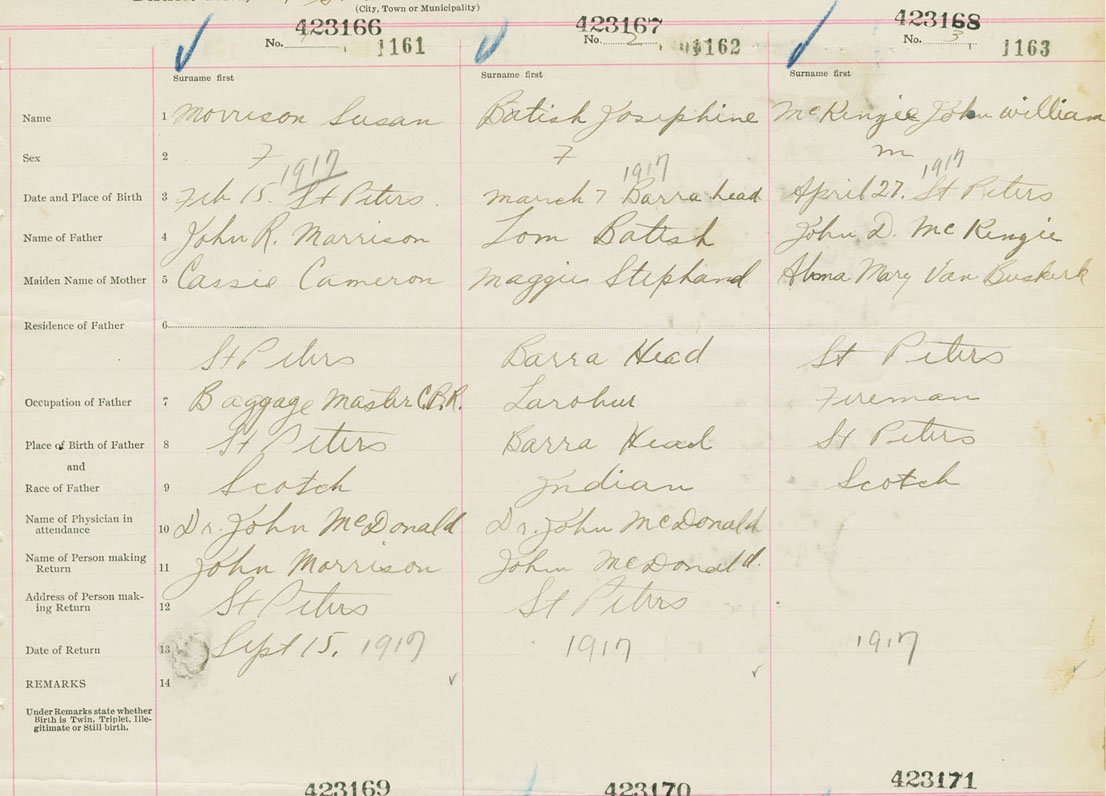 (City, Town or Municipality)
423166 423167 423168
No. 1 1161 No. 2 1162 No. 3 1163
Surname first Surname first Surname first
Name 1 Morrison Susan Batish Josephine McKinzie John William
Sex 2 F F m
1917 1917 1917
Date and Place of Birth 3 Feb 15. St Peters. March 7 Barra head April 27. St Peters
Name of Father 4 John R. Morrison Tom Batish John D. McKinzie
Maiden Name of Mother 5 Cassie Cameron Maggie Stephand Mary Van Buskirk
Residence of Father 6
St Peters Barra Head St Peters
Occupation of Father 7 Baggage Master Fireman
Place of Birth of Father 8 St Peters Barra Head St Peters
and
Race of Father 9 Scotch Indian Scotch
Name of Physician in
attendance 10 Dr. John McDonald Dr. John McDonald
Name of Person making
Return 11 John Morrison John McDonald.
Address of Person mak-
ing Return 12 St Peters St Peters
Date of Return 13 Sept 15, 1917 1917 1917
REMARKS 14
Under Remarks state whether
Birth is Twin, Triplet, Ille-
gitimate or Still birth.
423169 423170 423171